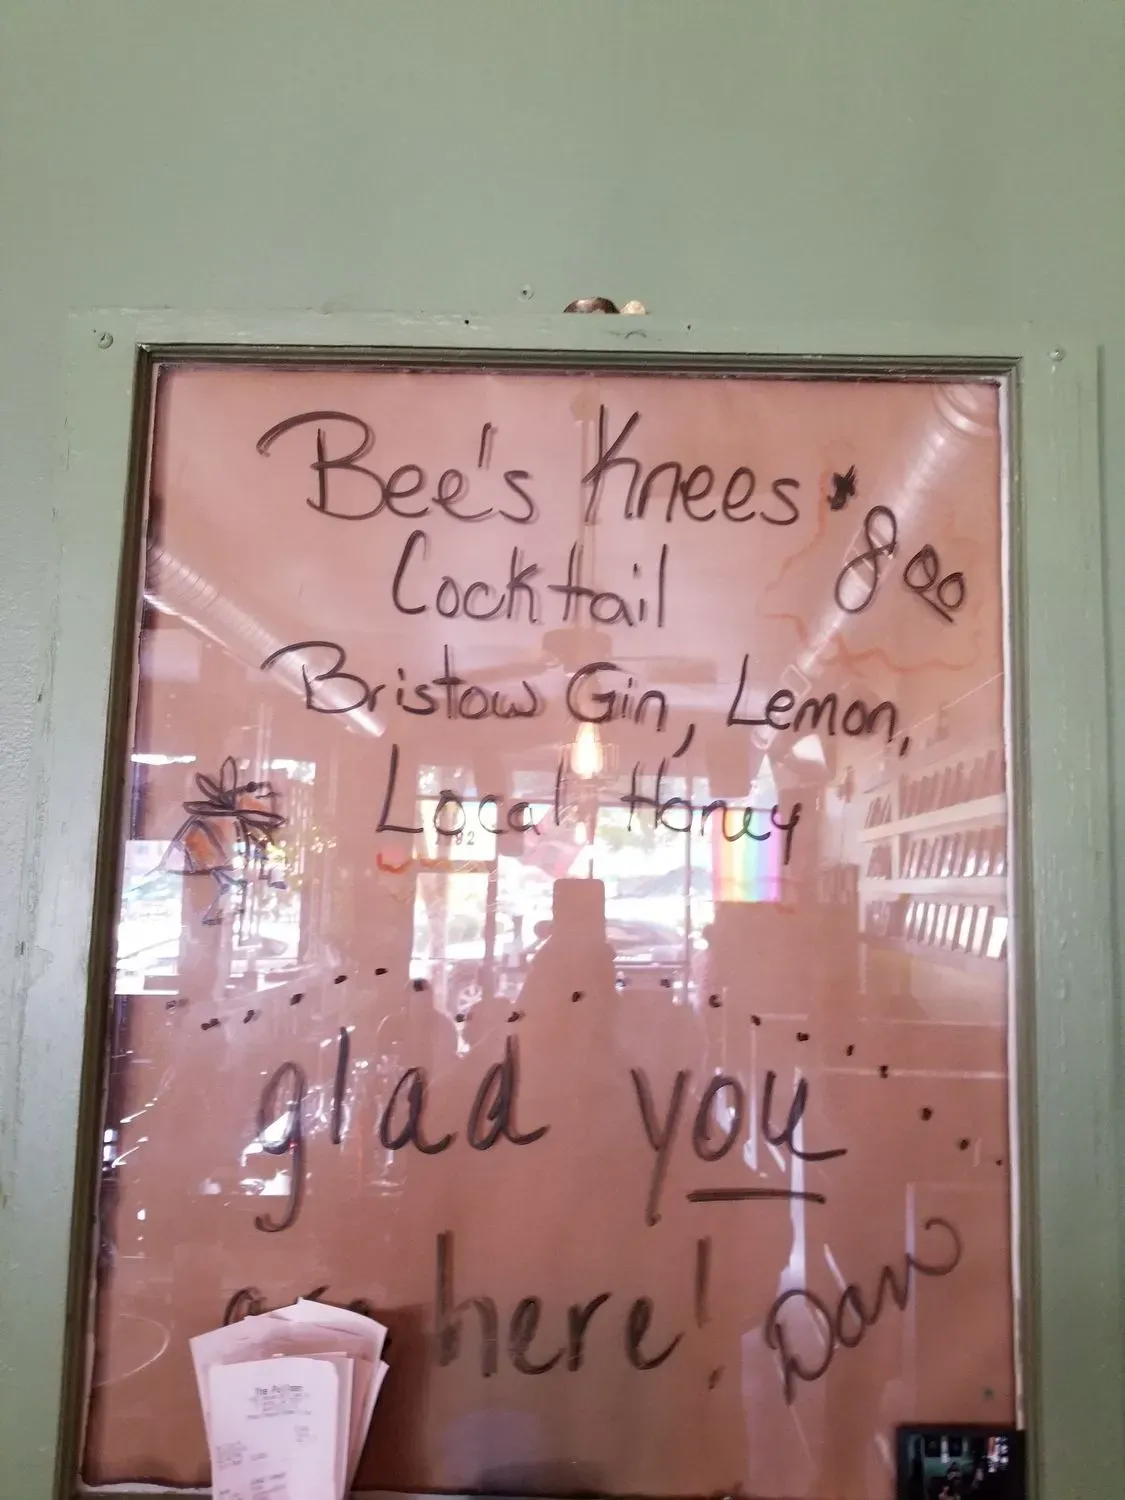 Bee's Knees *
8 00
Cocktail
Bristow Gin, Lemon,
Local Honey
glad you
are here!
Dan